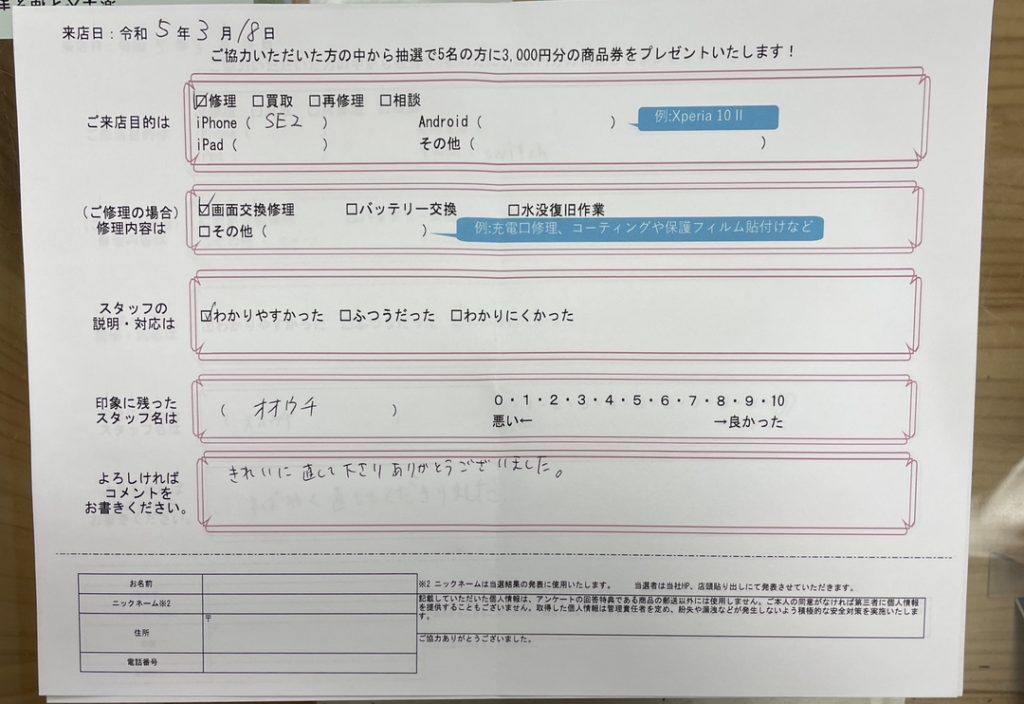 来店日：令和 5 年 3 月 18 日
ご協力いただいた方の中から抽選で5名の方に3,000円分の商品券をプレゼントいたします！
ご来店目的は
☑修理 □買取 □再修理 □相談
iPhone（ SE2 ） Android（ ） 例:Xperia 10 II
iPad（ ） その他（ ）
（ご修理の場合）
修理内容は
☑画面交換修理 □バッテリー交換 □水没復旧作業
□その他（ ） 例:充電口修理、コーティングや保護フィルム貼付けなど
スタッフの
説明・対応は
☑わかりやすかった □ふつうだった □わかりにくかった
印象に残った
スタッフ名は
（ オオウチ ）
0・1・2・3・4・5・6・7・8・9・10
悪い← →良かった
よろしければ
コメントを
お書きください。
きれいに直して下さりありがとうございました。
お名前
ニックネーム※2
住所
〒
電話番号
※2 ニックネームは当選結果の発表に使用いたします。 当選者は当社HP、店頭貼り出しにて発表させていただきます。
記載していただいた個人情報は、アンケートの回答特典である商品の郵送以外には使用しません。ご本人の同意がなければ第三者に個人情報
を提供することもございません。取得した個人情報は管理責任者を定め、紛失や漏洩などが発生しないよう積極的な安全対策を実施いたしま
す。
ご協力ありがとうございました。